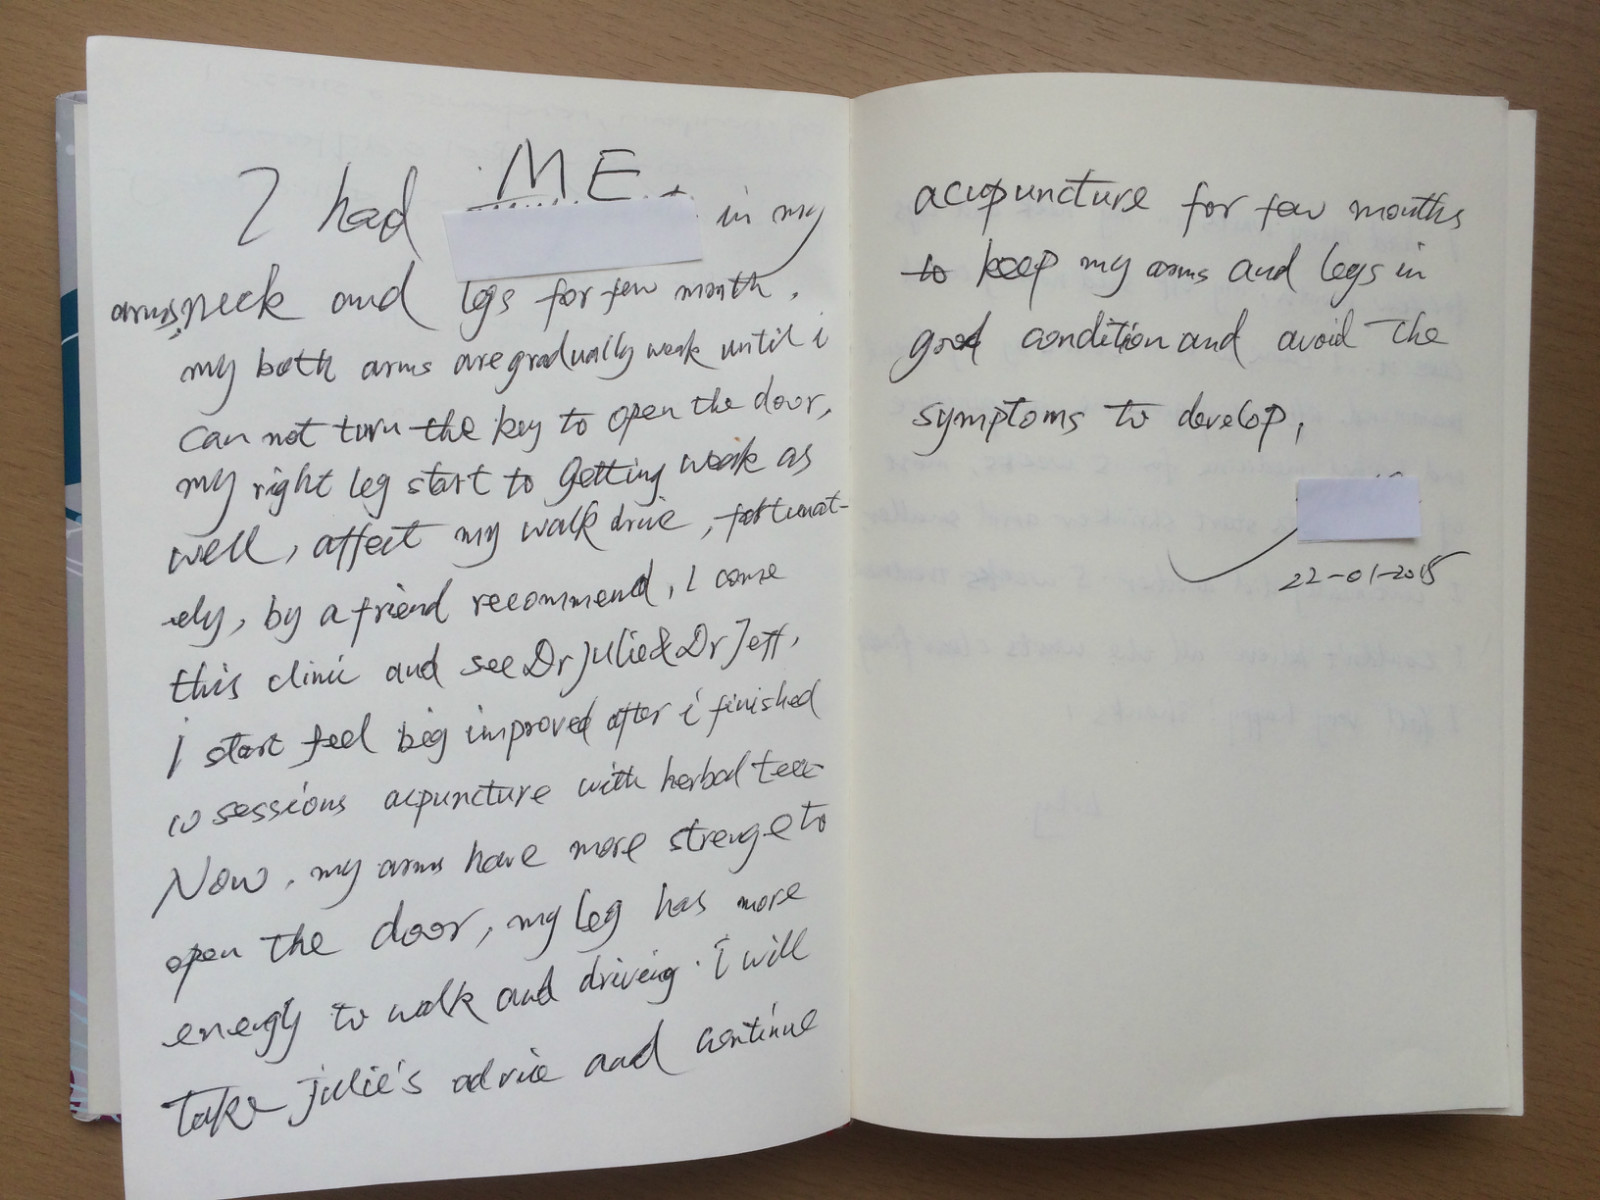 I had ME in my
arms, neck and legs for few month.
my both arms are gradually weak until i
can not turn the key to open the door,
my right leg start to getting weak as
well, affect my walk drive, fortunat-
ely, by a friend recommend, I come
this clinic and see Dr Julie & Dr Jeff,
I start feel big improved after i finished
10 sessions acpuncture with herbal tee
Now, my arms have more strenge to
open the door, my leg has more
energy to walk and driveing. I will
take Julie's advice and continue
acupuncture for few months
to keep my arms and legs in
good condition and avoid the
symptoms to develop,
22-01-2015